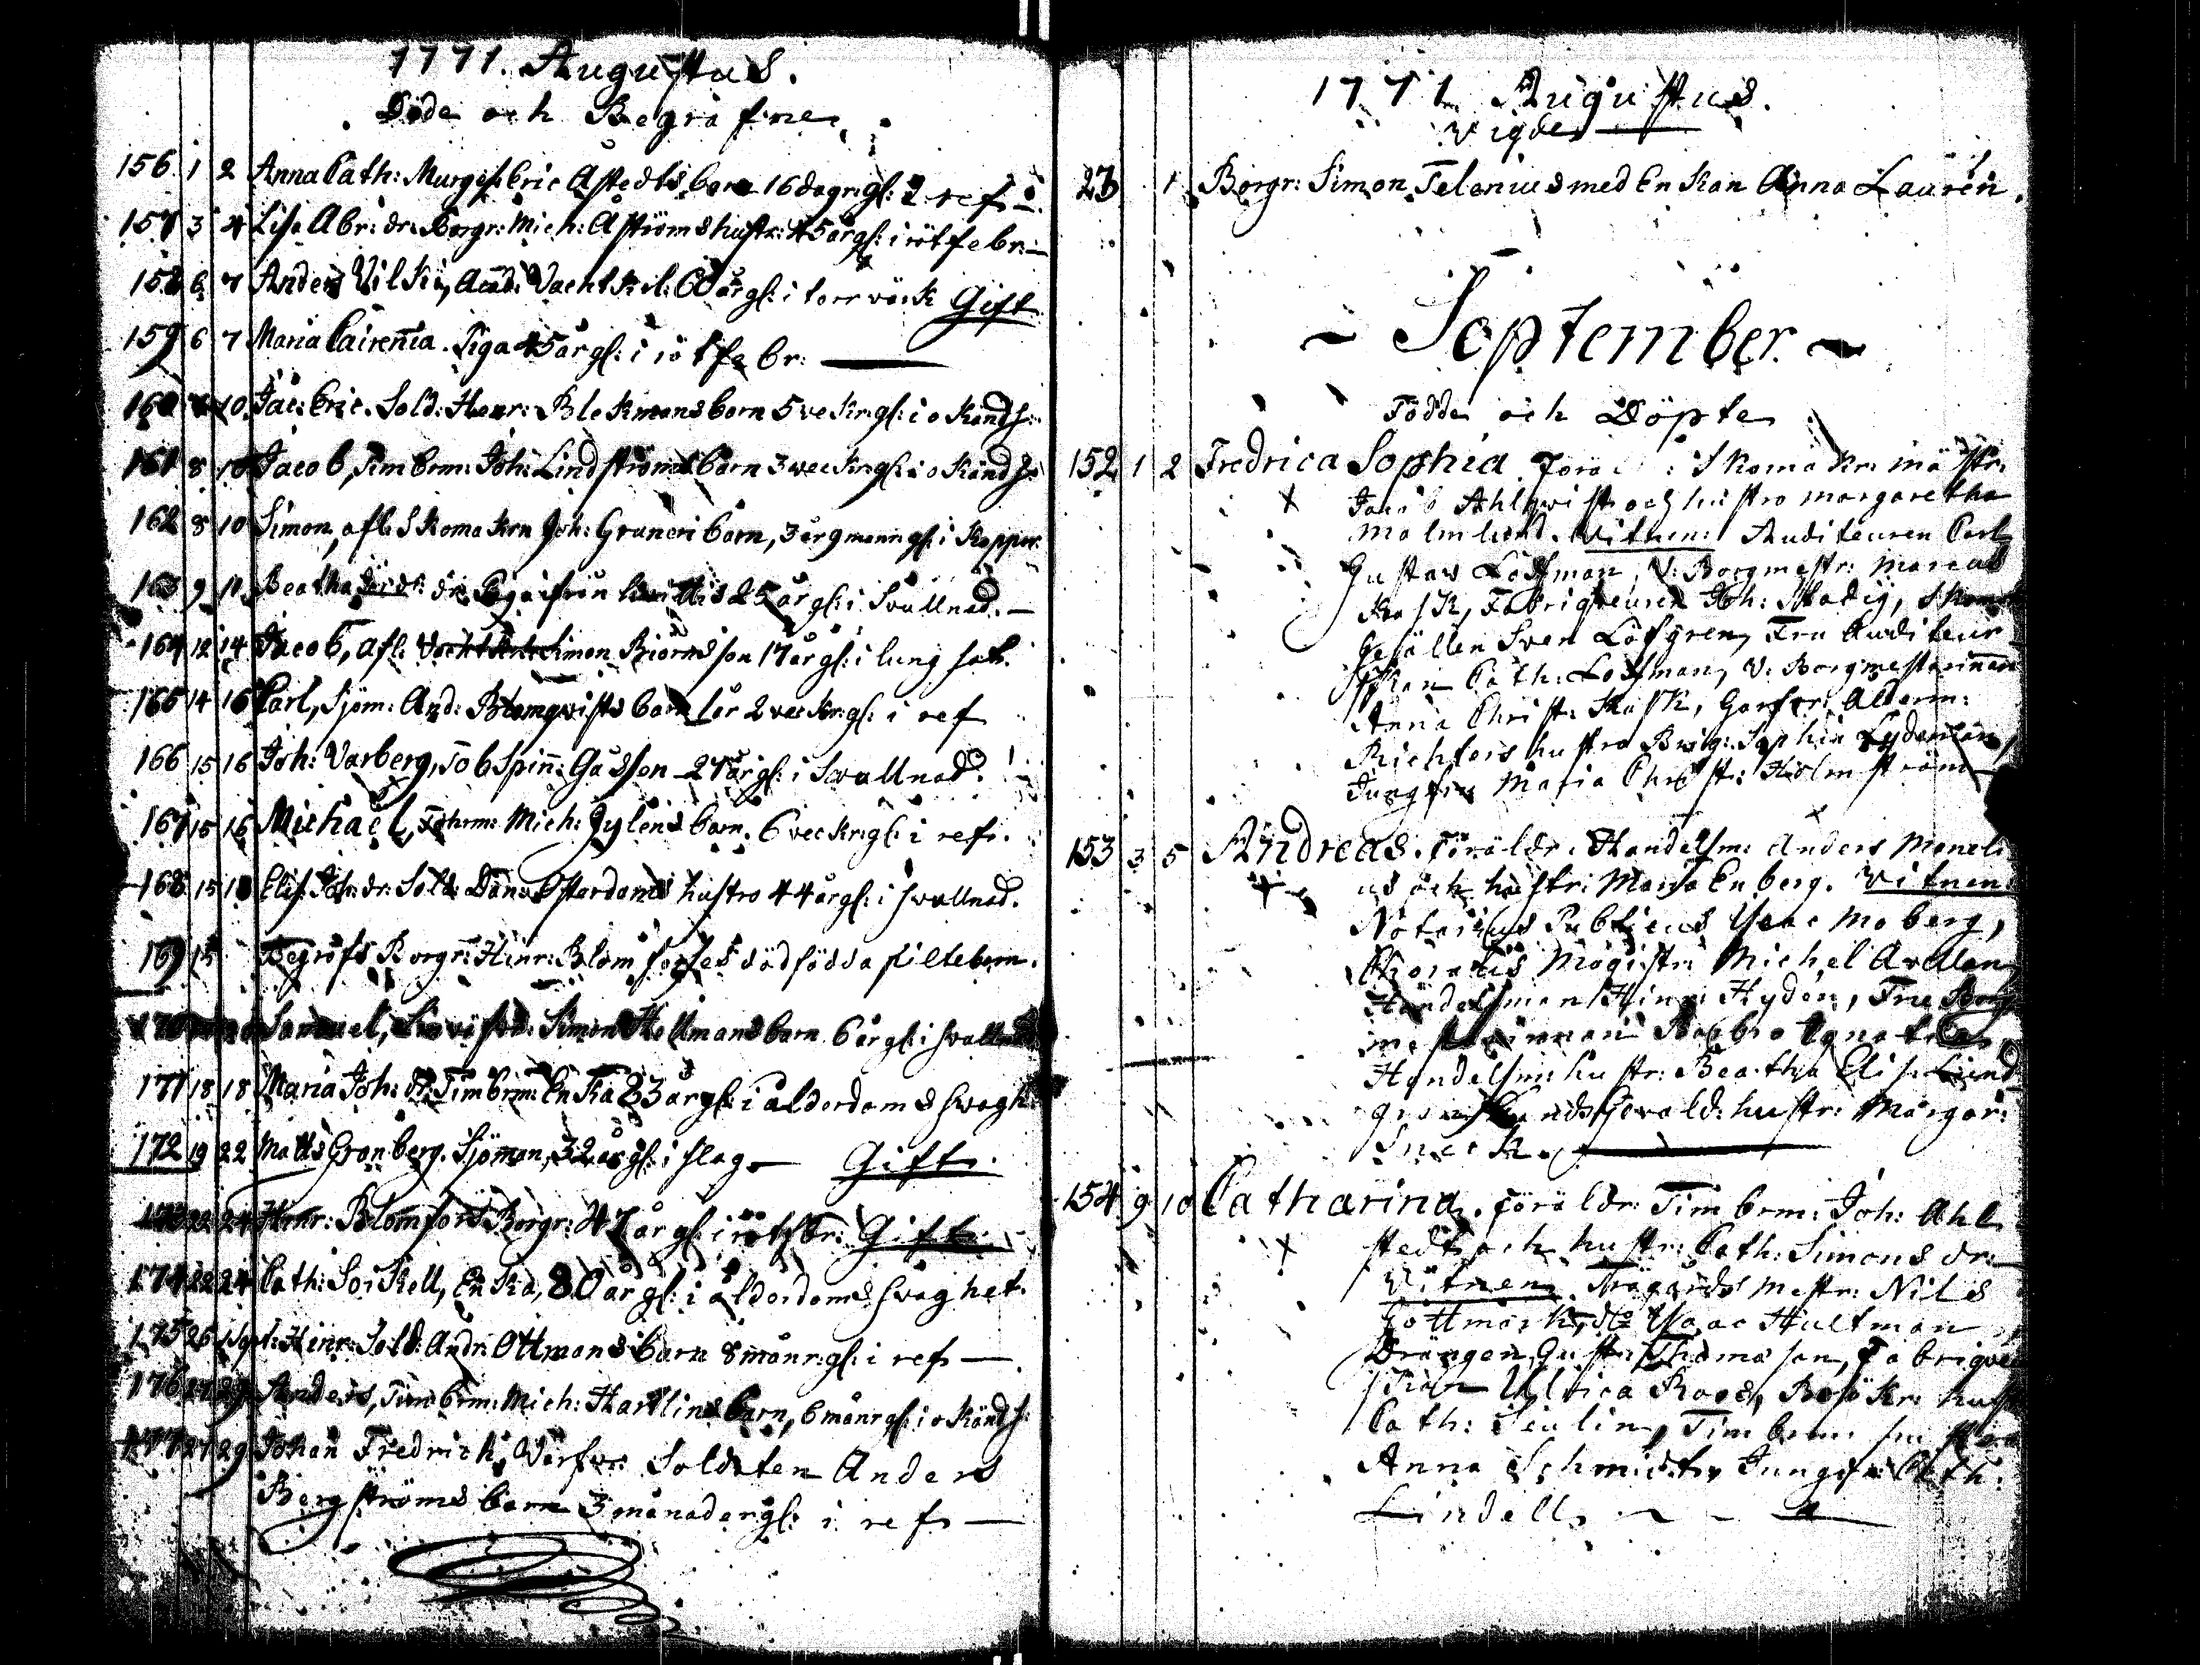 1771. Augustus.
Döde och Begrafne.
156 1 2 Anna Cath: Murges: Eric Åstedts barn 16 dagr. gl: i ref
157 3 4 Lisa Abr: dr. Borgr: Mich: Åströms hustr: 45 år gl: i rötfebr:
158 6 7 Anders Vilki, Acad: Vachtk.l: 60 år gl: i torrvärk Gift
159 6 7 Maria Cairenia. Piga 45 år gl: i rötfebr:
160 10 Jac: Eric. Sold: Henr: Blekmans barn 5 vekr: gl: i okänds:
161 8 10 Jacob, Timbrm: Joh: Lindströms barn 3 veekr gl: i okänds:
162 8 10 Simon, afl: Skomakrn Joh: Graneri barn, 3 år 9 månr gl: i koppor.
163 9 11 Beatha dr. 25 år gl: i Svullnad.
164 12 14 Jacob, afl: Simon Biörns son 17 år gl: i lungsot.
165 14 16 Carl, Sjöm: And: Blomqvists barn 1 år 2 veekr: gl: i ref
166 15 16 Joh: Varberg, Tobspinn: Gåssen 27 år gl: i Svullnad.
167 15 16 Michaël, Mich: Gylens barn. 6 veekr gl: i ref.
168 15 18 Elis: Joh: dr: Sold: Dan: Österdams hustro 44 år gl: i svullnad.
169 15 Begrofs Borgr: Hinr: Blomfortes dödfödda piltebarn.
170 Samuel, Simon Hellmans barn 6 år gl: i svullnad
171 18 18 Maria Joh: dr. Timbrm: Enka 83 år gl: i ålderdoms svagh:
172 19 22 Matts Granberg. Sjöman, 32 år gl: i slag Gift.
173 22 24 Henr: Blomfort Borgr: 47 år gl: i rötfbr: Gift.
174 22 24 Cath: Soikell, Enka, 80 år gl: i ålderdoms svaghet.
175 26 Hinr: Sold: Andr: Ottmans barn 8 månr: gl: i ref
176 27 29 Anders, Timbrm: Mich: Hartlins barn, 6 månr gl: i okänds:
177 27 29 Johan Fredrich, Varfvs Soldaten Anders
Bergströms barn 3 månader gl: i ref
1771 Augustus.
Vigde
23 1 Borgr: Simon Telenius med Enkan Anna Laurén.
~ September. ~
Födde och Döpte
152 1 2 Fredrica Sophia. Skomakr: mästr:
Ahlqvist och hustro Margaretha
Malmlund. Vitnen: Auditeuren Carl
Gustav Löfman, V: Borgmestr: Marcus
Kask, Fabriqueuren Joh: Stadig, Skom
Gesällen Sven Löfgren, Fru Auditeur
skan Cath: Löfman, V: Borgmestarinnan
Anna Christ: Kask, Garfvr: Ålderm:
Richters hustro Brig: Sophia Lydeman,
Jungfru Maria Christ: Holmström
153 3 5 Andreas. Föräldr: Handelsm: Anders Moneli
us och hustr: Maria Enberg. Vitnen:
Notarius Publicus Isaac Moberg,
Magistr: Michel Avellan,
Handelsman Hinr: Hyden, Fru Borg
mestarinnan Barbro Ignatia
Handelsm: hustr: Beatha Elis: Lind
hustr: Margar:
Sneck.
154 9 10 Catharina. Föräldr: Timbrm: Joh: Ahl
stedt och hustr: Cath: Simons dr:
Vitnen. Trägårds mestr: Nils
Gottmark, d:o Isaac Hultman
Drängen Gust: Thomason, Fabrique
skan Ulrica Roos, Besökr: hustr
Cath: Seulin, Timberm: hustro
Anna Schmidt, Jungfr: Cath:
Lindell.